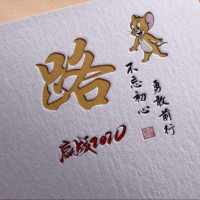 路
不忘初心
勇敢前行
2020